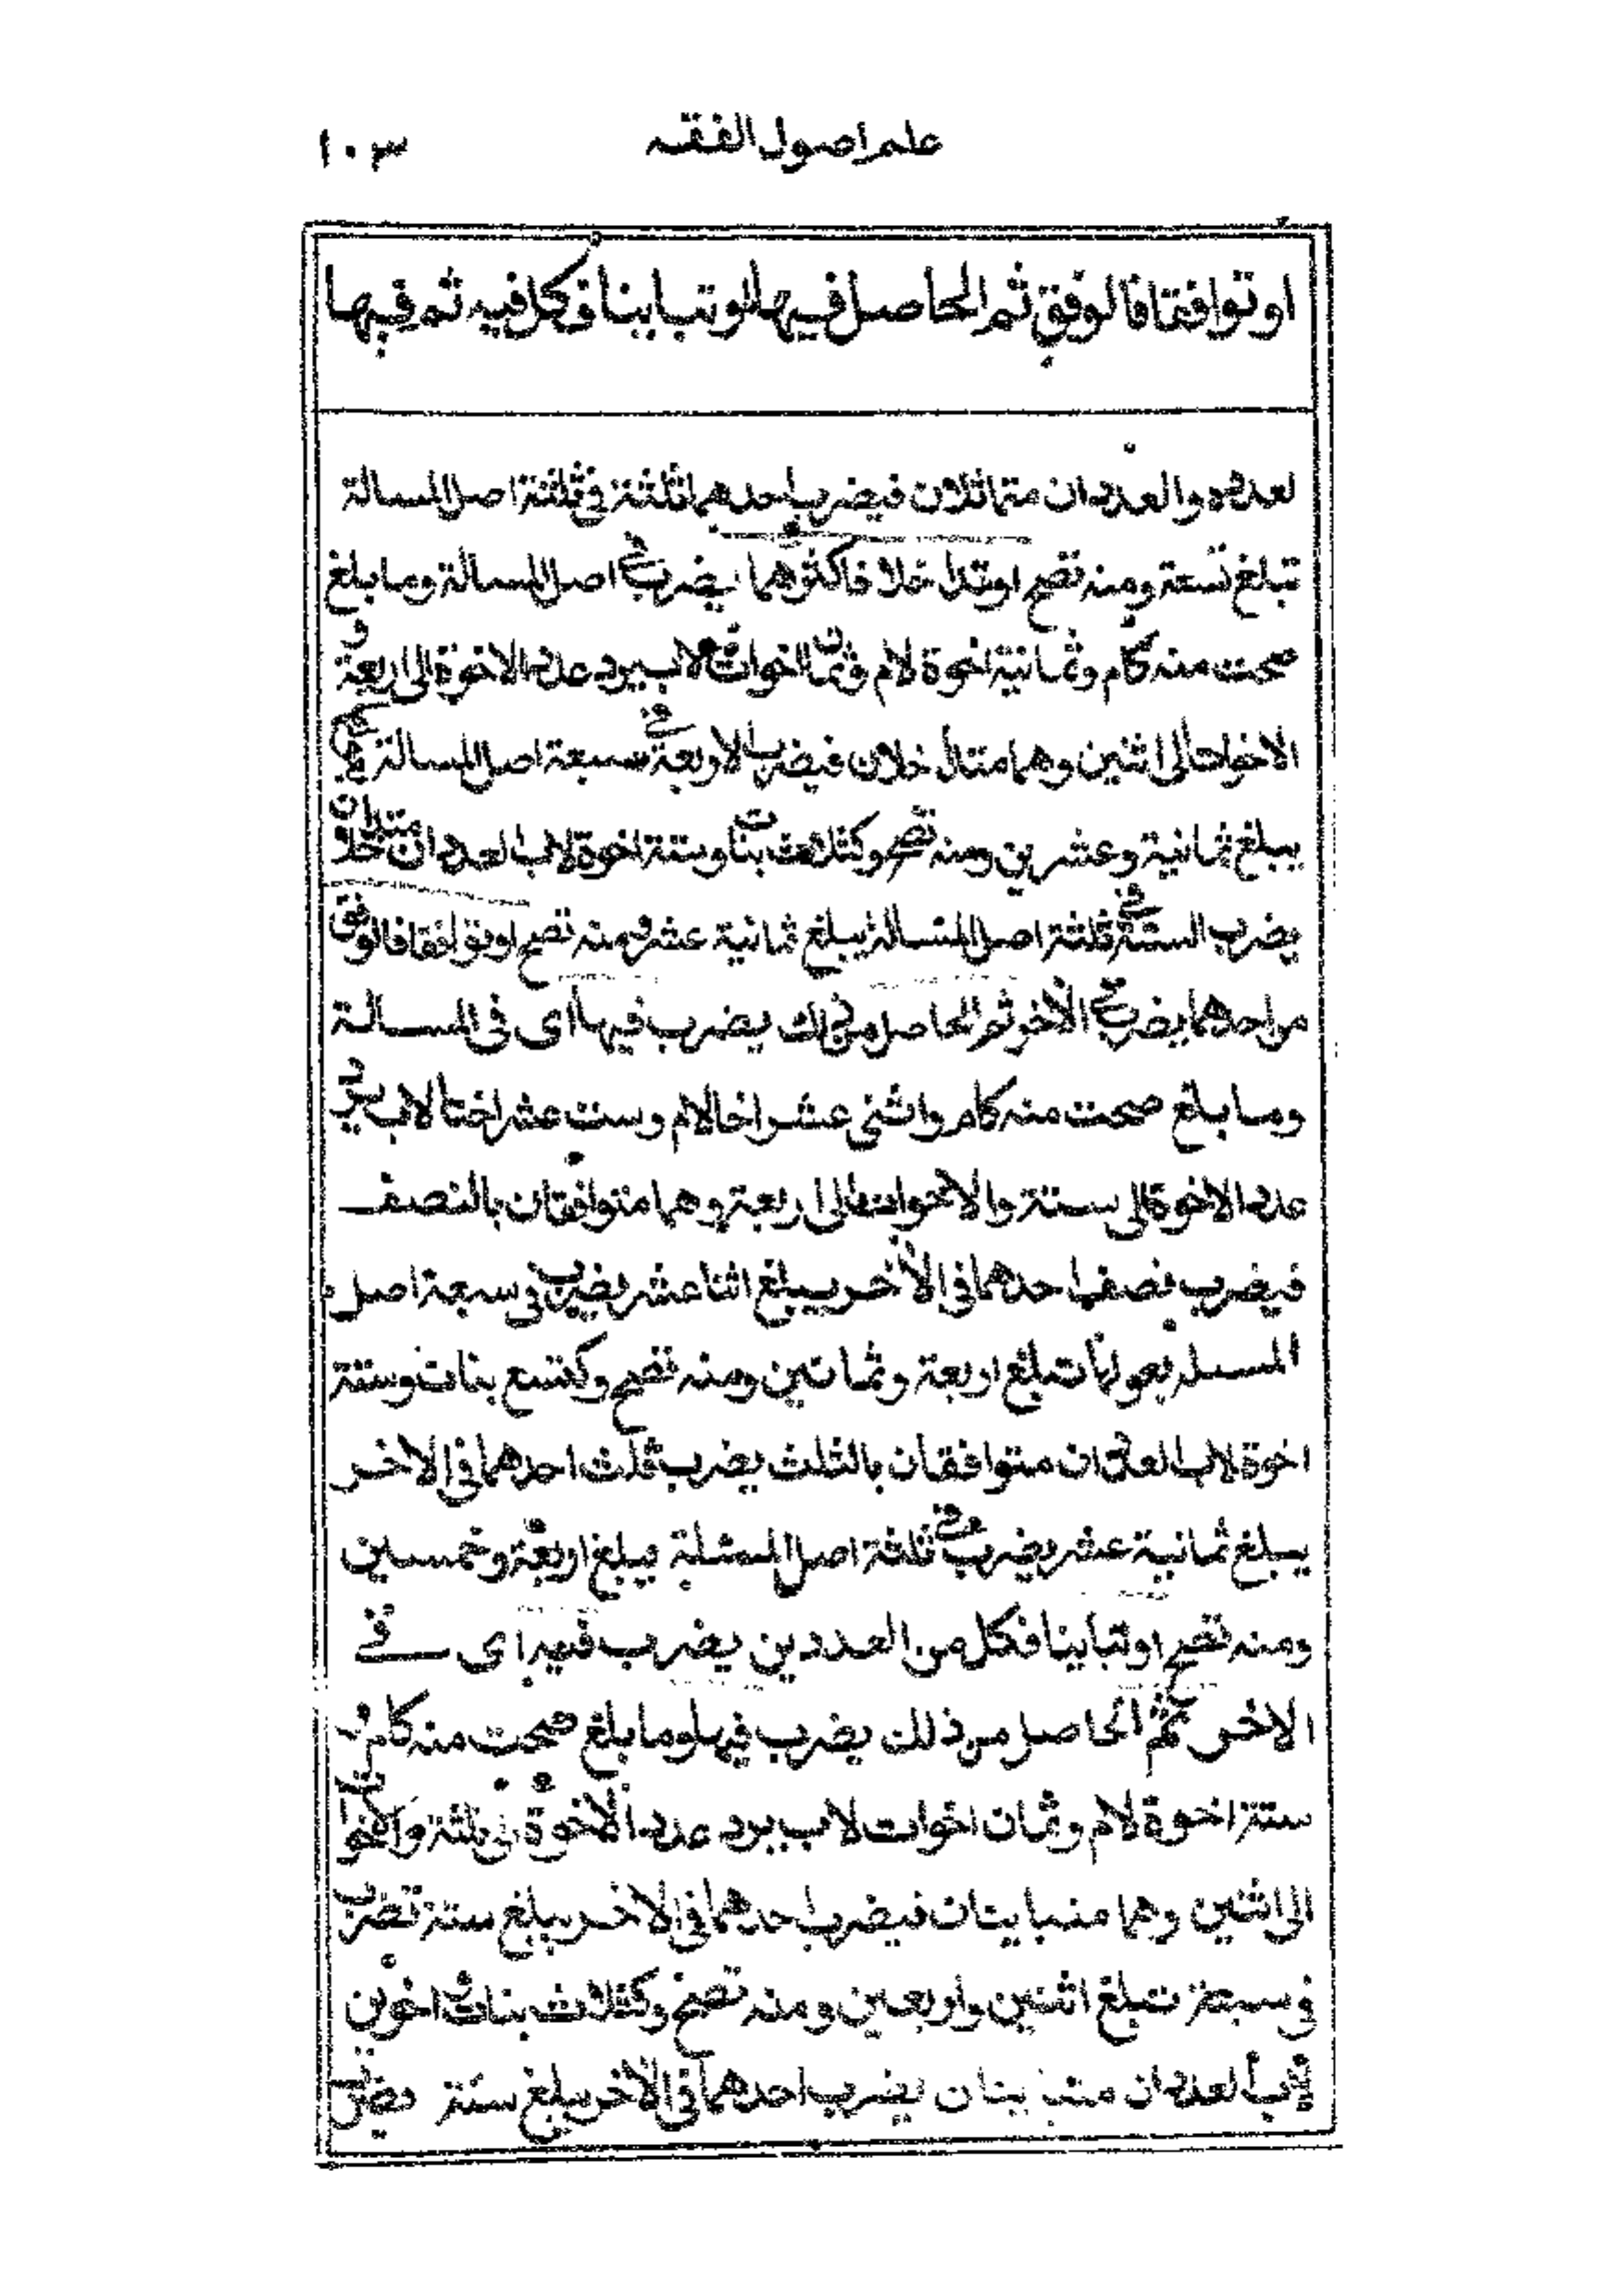 علم اصول الفقه ١٠٣
او توافقتا فالوفق ثم الحاصل فيها او تباينا فكل فيه ثم فيها
لعدده والعددان متماثلان فيضرب احدهما ثلثة في ثلثة اصل المسالة
تبلغ تسعة ومنه تصح او تداخلا فاكثرهما يضرب في اصل المسالة وما بلغ
صحت منه كام وثمانية اخوة لام وثمان اخوات لاب يرد عدد الاخوة الى اربعة و
الاخوات الى اثنين وهما متداخلان فيضرب الاربعة في سبعة اصل المسالة
يبلغ ثمانية وعشرين ومنه تصح وكثلاث بنات وستة اخوة لاب العددان متداخلان
يضرب الستة في ثلثة اصل المسالة يبلغ ثمانية عشر ومنه تصح او توافقا فالوفق
من احدهما يضرب في الاخر ثم الحاصل من ذلك يضرب فيها اى فى المسالة
وما بلغ صحت منه كام واثنى عشر اخا لام وست عشر اختا لاب يرد
عدد الاخوة الى ستة والاخوات الى اربعة وهما متوافقان بالنصف
فيضرب نصف احدهما في الاخر يبلغ اثنا عشر يضرب في سبعة اصل
المسلة بعولها تبلغ اربعة وثمانين ومنه تصح وكتسع بنات وستة
اخوة لاب العددان متوافقان بالثلث يضرب ثلث احدهما في الاخر
يبلغ ثمانية عشر يضرب في ثلثة اصل المسئلة يبلغ اربعة وخمسين
ومنه تصح او تباينا فكل من العددين يضرب فيه اى في
الاخر ثم الحاصل من ذلك يضرب فيها وما بلغ صحت منه كام و
ستة اخوة لام وثمان اخوات لاب يرد عدد الاخوة الى ثلثة والاخوات
الى اثنين وهما متباينان فيضرب احدهما في الاخر يبلغ ستة تضرب
في سبعة تبلغ اثنين واربعين ومنه تصح وكثلاث بنات واخوين
لاب العددان متباينان يضرب احدهما في الاخر يبلغ ستة يضرب